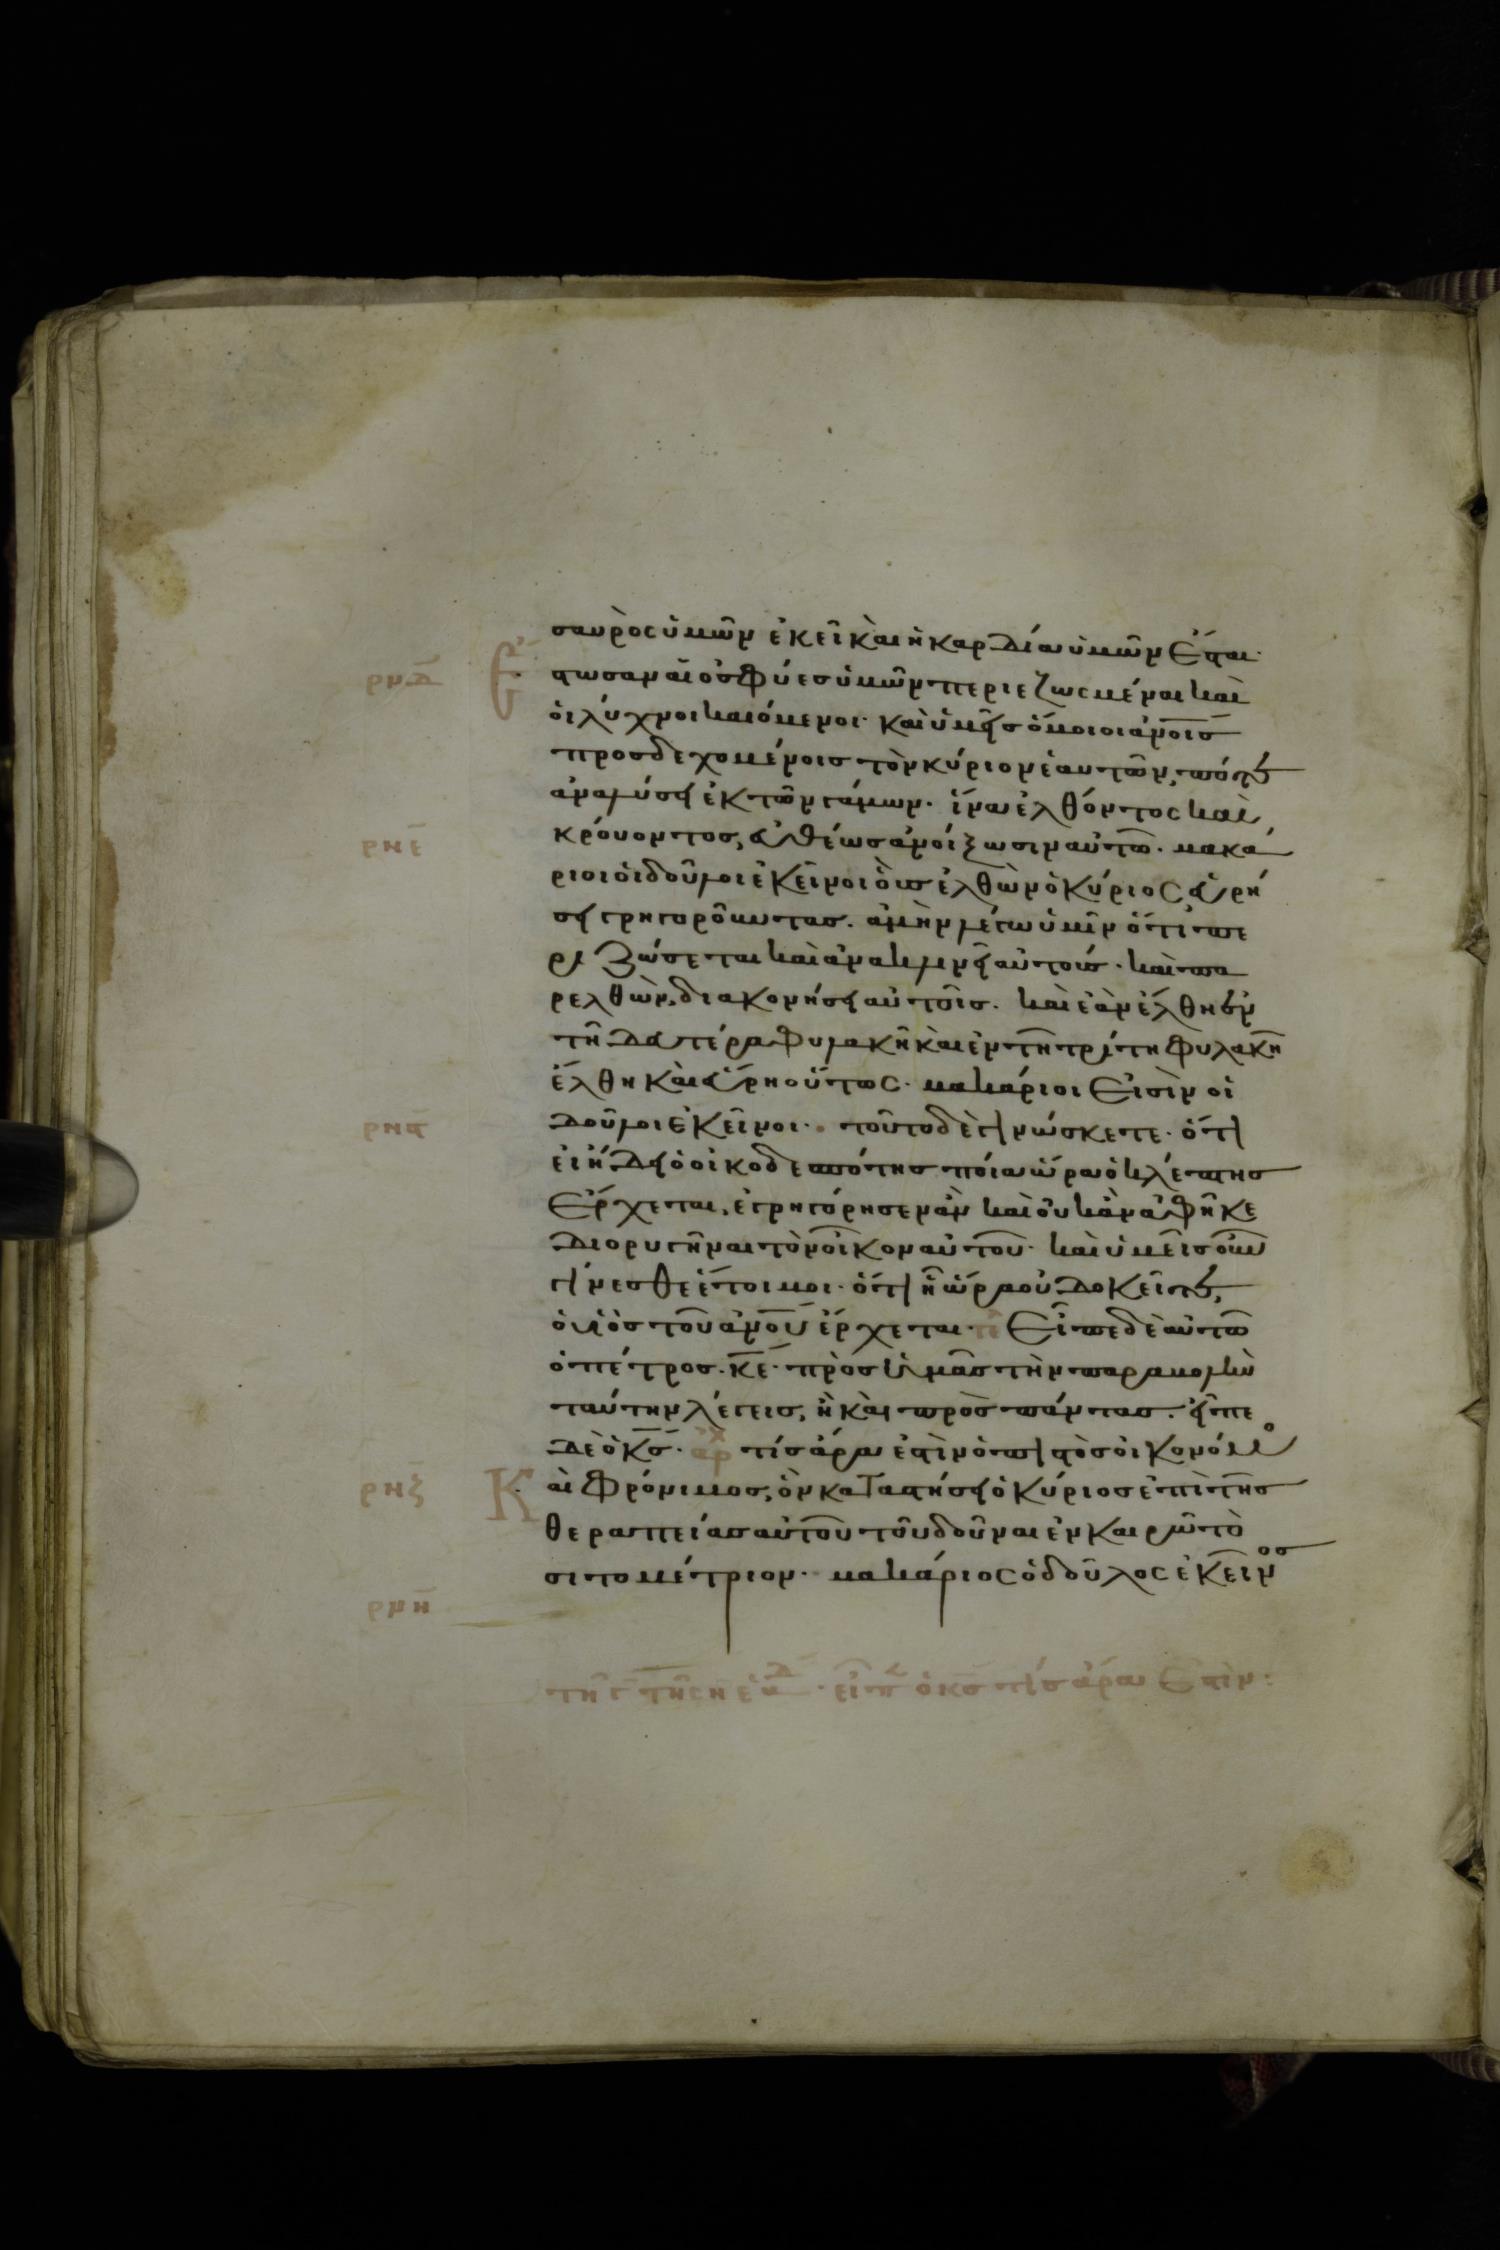 σαυρὸς ὑμῶν ἐκεῖ καὶ ἡ καρδία ὑμῶν Ἔσται·
ρμδ Ἔ τωσαν αἱ ὀσφύες ὑμῶν περιεζωσμέναι καὶ
οἱ λύχνοι καιόμενοι· καὶ ὑμεῖς ὅμοιοι ἀνοις
προσδεχομένοις τὸν κύριον ἑαυτῶν, πότε
ἀναλύσει ἐκ τῶν γάμων· ἵνα ἐλθόντος καὶ
ρνε κρούοντος, εὐθέως ἀνοίξωσιν αὐτῶ· μακά
ριοι οἱ δοῦλοι ἐκεῖνοι οὓς ἐλθὼν ὁ κύριος εὑρή
σει γρηγοροῦντας. ἀμὴν λέγω ὑμῖν ὅτι πε
ριζώσεται καὶ ἀνακλινεῖ αὐτούς· καὶ πα
ρελθὼν, διακονήσει αὐτοῖς. καὶ ἐὰν ἔλθη ἐν
τῆ δευτέρα φυλακῆ καὶ ἐν τῆ τρίτη φυλακῆ
ἔλθη καὶ εὕρη οὕτως· μακάριοι εἰσὶν οἱ
ρνς δοῦλοι ἐκεῖνοι· τοῦτο δὲ γινώσκετε· ὅτι
εἰ ἤδει ὁ οἰκοδεσπότης ποία ὥρα ὁ κλέπτης
ἔρχεται, ἐγρηγόρησεν ἂν καὶ οὐκ ἂν ἀφῆκε
διορυγῆναι τὸν οἶκον αὐτοῦ· καὶ ὑμεῖς οὖν
γίνεσθε ἕτοιμοι· ὅτι ἧ ὥρα οὐ δοκεῖτε,
ὁ υἱὸς τοῦ ἀνου ἔρχεται· τε Εἶπε δὲ αὐτῶ
ὁ πέτρος. κε· πρὸς ἡμᾶς τὴν παραβολὴν
ταύτην λέγεις, ἢ καὶ πρὸς πάντας. εἶπε
δὲ ὁ κς· αρχ τίς ἄρα ἐστὶν ὁ πιστὸς οἰκονόμο
ρνζ Κ αὶ φρόνιμος, ὃν καταστήσει ὁ κύριος ἐπὶ τῆς
θεραπείας αὐτοῦ τοῦ δοῦναι ἐν καιρῶ τὸ
σιτομέτριον· μακάριος ὁ δοῦλος ἐκεῖνος
ρνη
εἶπ ὁ κς τίς ἄρα Ἐστὶν: